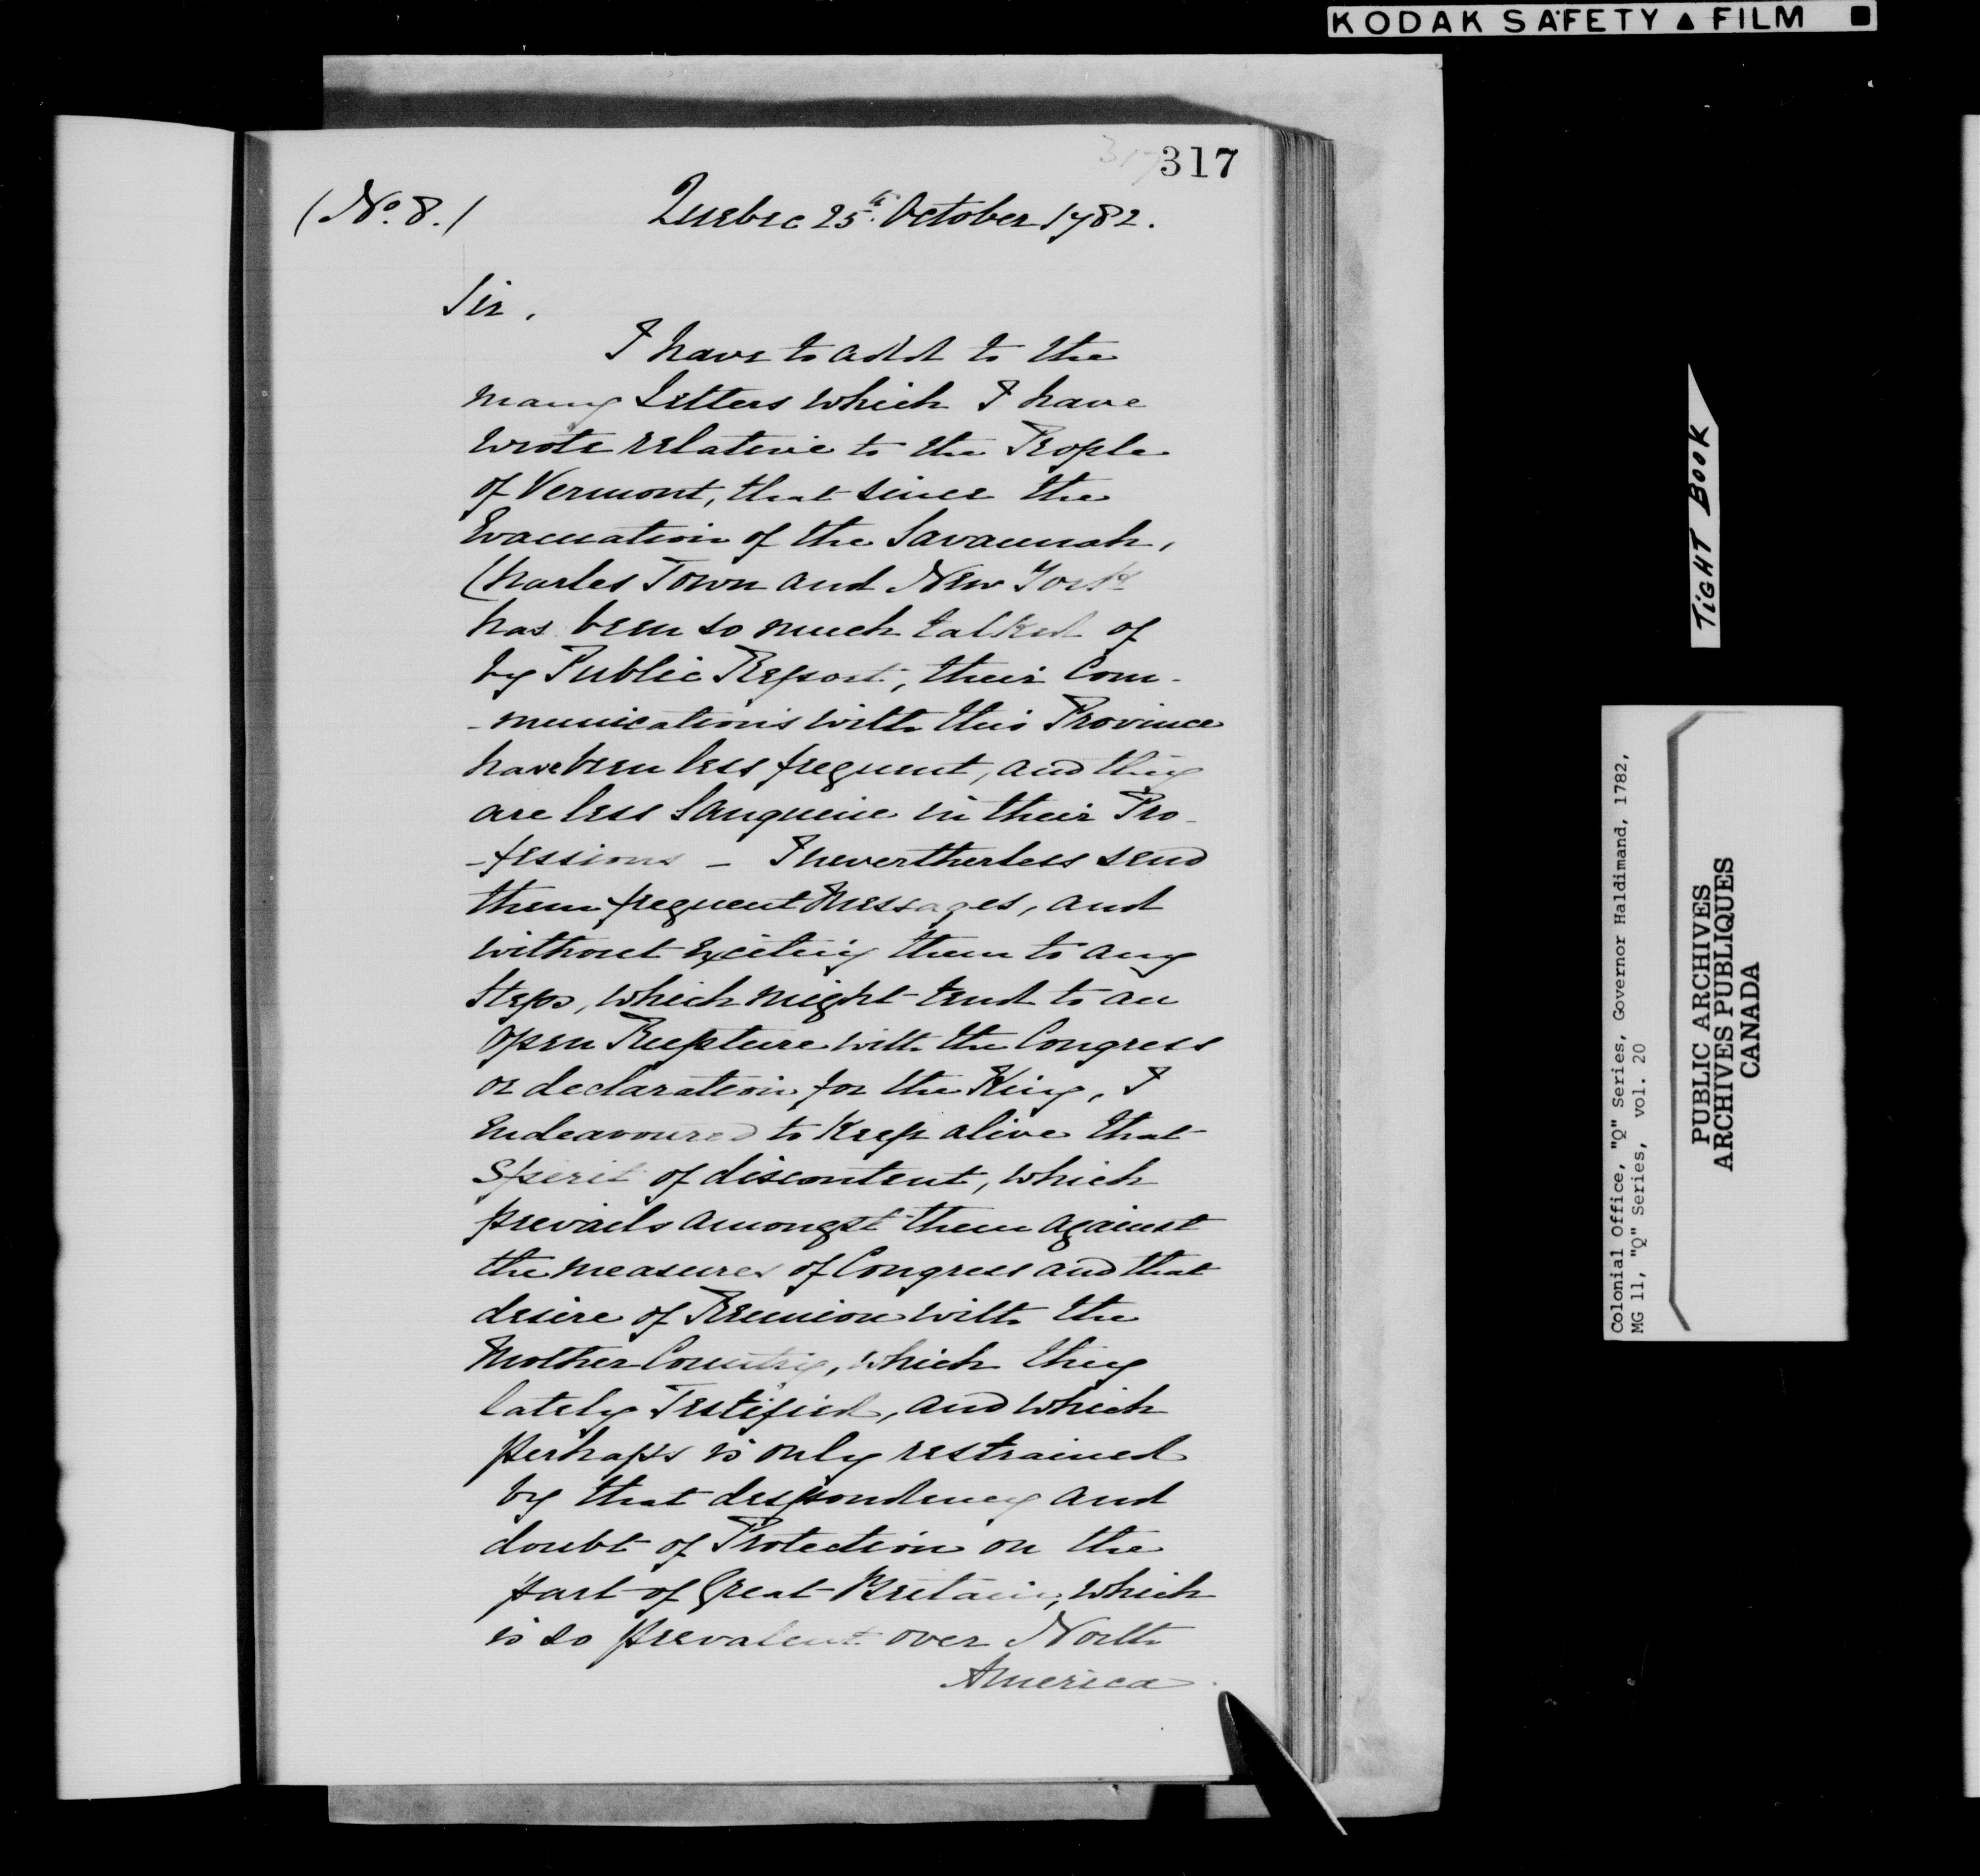 KODAK SAFETY ▲ FILM ■
317 317
(No. 8.) Quebec 25th. October 1782.
Sir,
I have to add to the
many Letters which I have
wrote relative to the People
of Vermont, that since the
Evacuation of the Savannah,
Charles Town and New York
has been so much talked of
by Public Report, their Com-
-munications with this Province
have been less frequent, and they
are less Sanguine in their Pro-
-fessions - I nevertherless send
them frequent Messages, and
without Exciting them to any
Steps, which might tend to an
open Rupture with the Congress
or declaration for the King, I
Endeavoured to Keep alive that
Spirit of discontent, which
prevails amongst them against
the measures of Congress and that
desire of Reunion with the
Mother Country, which they
lately Testified, and which
perhaps is only restrained
by that despondency and
doubt of Protection on the
part of Great Britain, which
is so prevalent over North
America
TiGHT BOOK
Colonial Office, "Q" Series, Governor Haldimand, 1782,
MG 11, "Q" Series, vol. 20
PUBLIC ARCHIVES
ARCHIVES PUBLIQUES
CANADA